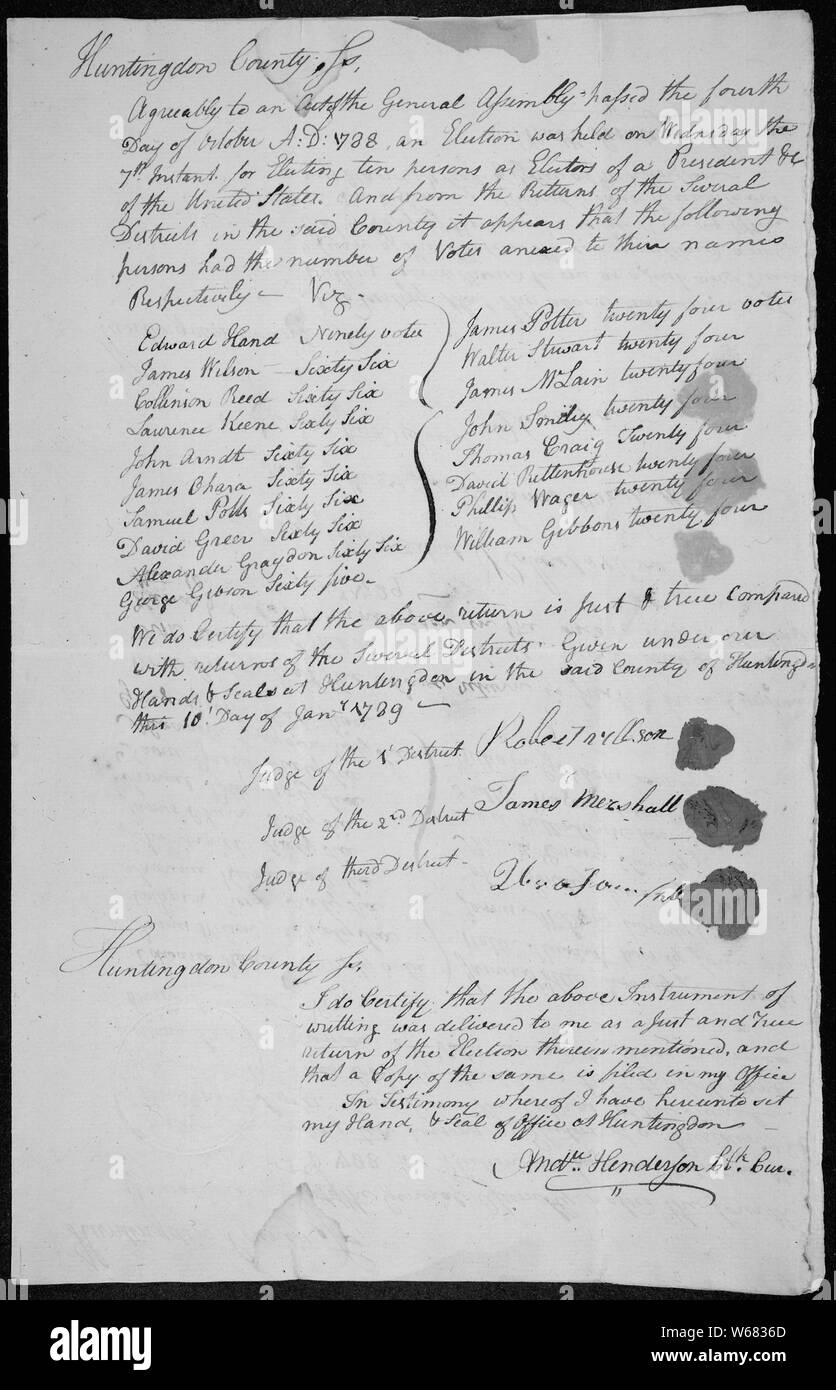 Huntingdon County, Ss,
Agreeably to an Act of the General Assembly passed the fourth
Day of October A:D: 1788, an Election was held on Wednsday the
7th Instant for Electing ten persons as Electors of a President &c
of the United States. And from the Returns of the Several
Districts in the said County it appears that the following
persons had the number of Votes anexed to their names
Respectively - Viz -
Edward Hand Ninety votes
James Wilson - Sixty Six
Collinson Reed Sixty Six
Lawrence Keene Sixty Six
John Arndt Sixty Six
James Ohara Sixty Six
Samuel Potts Sixty Six
David Greer Sixty Six
Alexander Graydon Sixty Six
George Gibson Sixty five -
James Potter twenty four votes
Walter Stewart twenty four
James McLain twenty four
John Smiley twenty four
Thomas Craig Twenty four
David Rittenhouse twenty four
Phillip Wager twenty four
William Gibbons twenty four
We do Certify that the above return is Just & true compared
with returns of the Several Districts Given under our
Hands & Seals at Huntingdon in the said County of Huntingdon
this 10t Day of Jany 1789 -
Judge of the 1t District. Robert
Judge of the 2nd District James Mershall
Judge of third District -
Huntingdon County Ss,
I do Certify that the above Instrument of
writting was delivered to me as a Just and True
return of the Election therein mentioned, and
that a Copy of the same is filed in my Office
In Testimony whereof I have hereunto set
my Hand, & Seal of Office at Huntingdon
Andw. Henderson Clk. Cur.
alamy
Image ID: W6836D
www.alamy.com